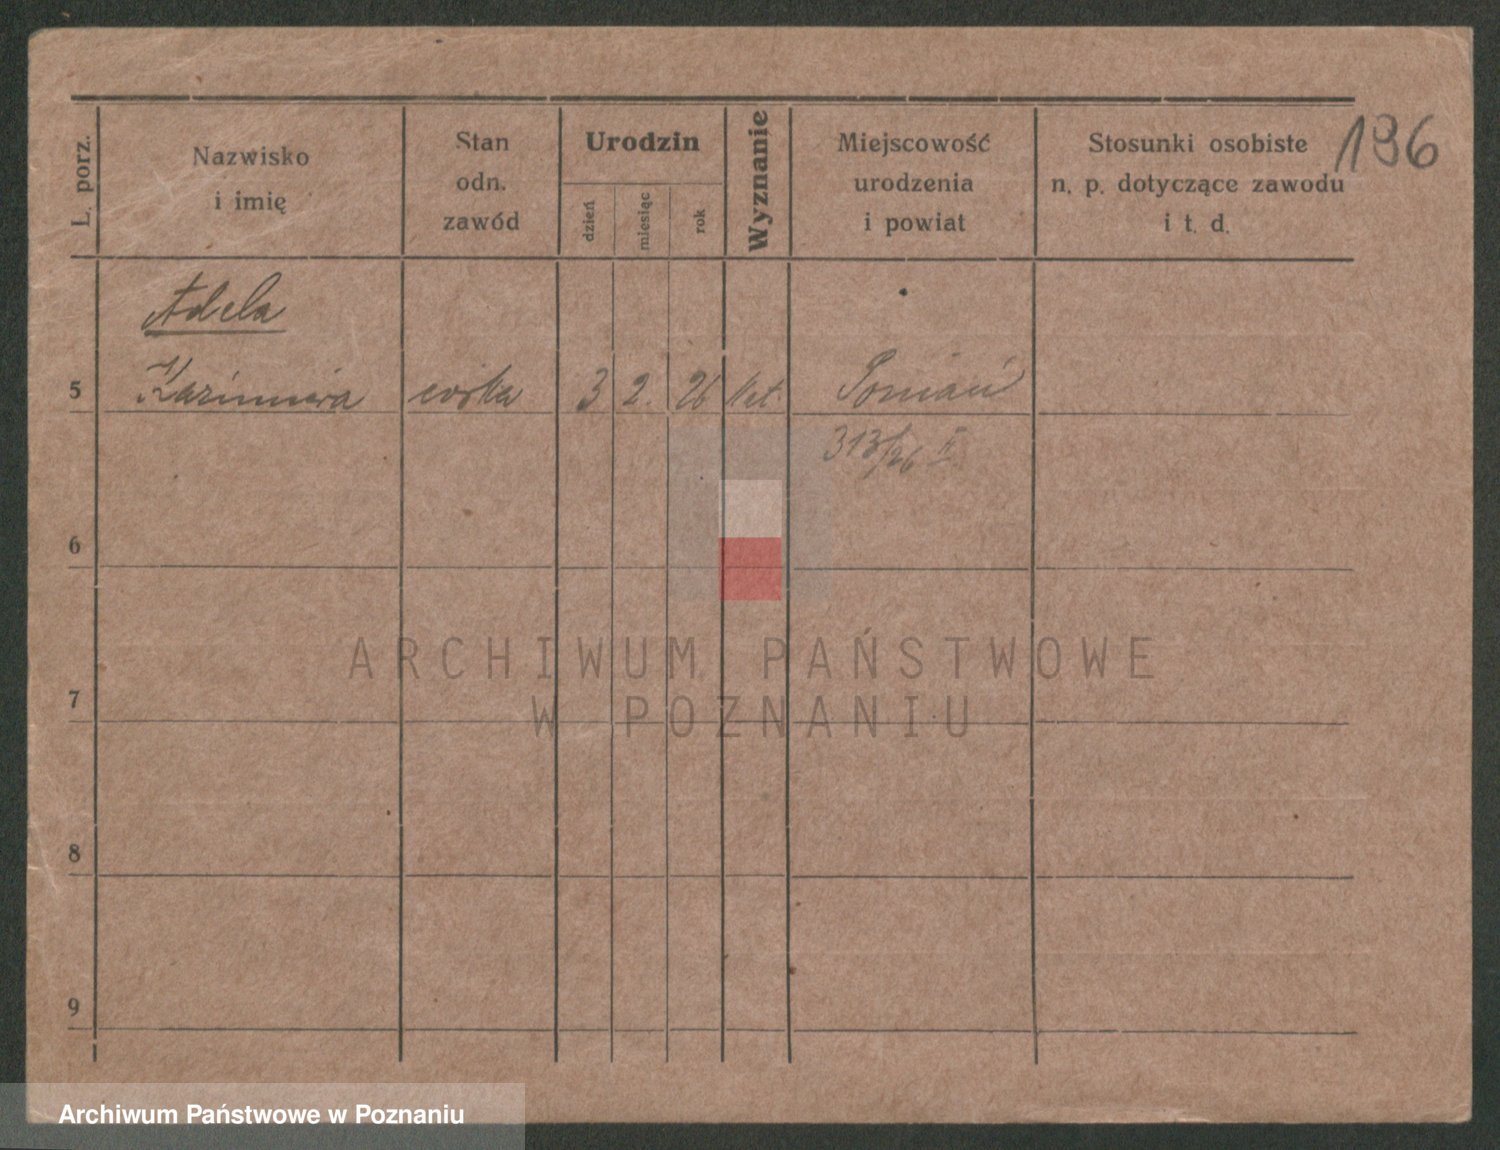 196
L. porz.
Nazwisko
i imię
Stan
odn.
zawód
Urodzin
dzień
miesiąc
rok
Wyznanie
Miejscowość
urodzenia
i powiat
Stosunki osobiste
n. p. dotyczące zawodu
i t. d.
Adela
5 Kazimiera córka 3 2. 26 kat. Poznań
313/26 II
6
7
8
9
ARCHIWUM PAŃSTWOWE
W POZNANIU
Archiwum Państwowe w Poznaniu